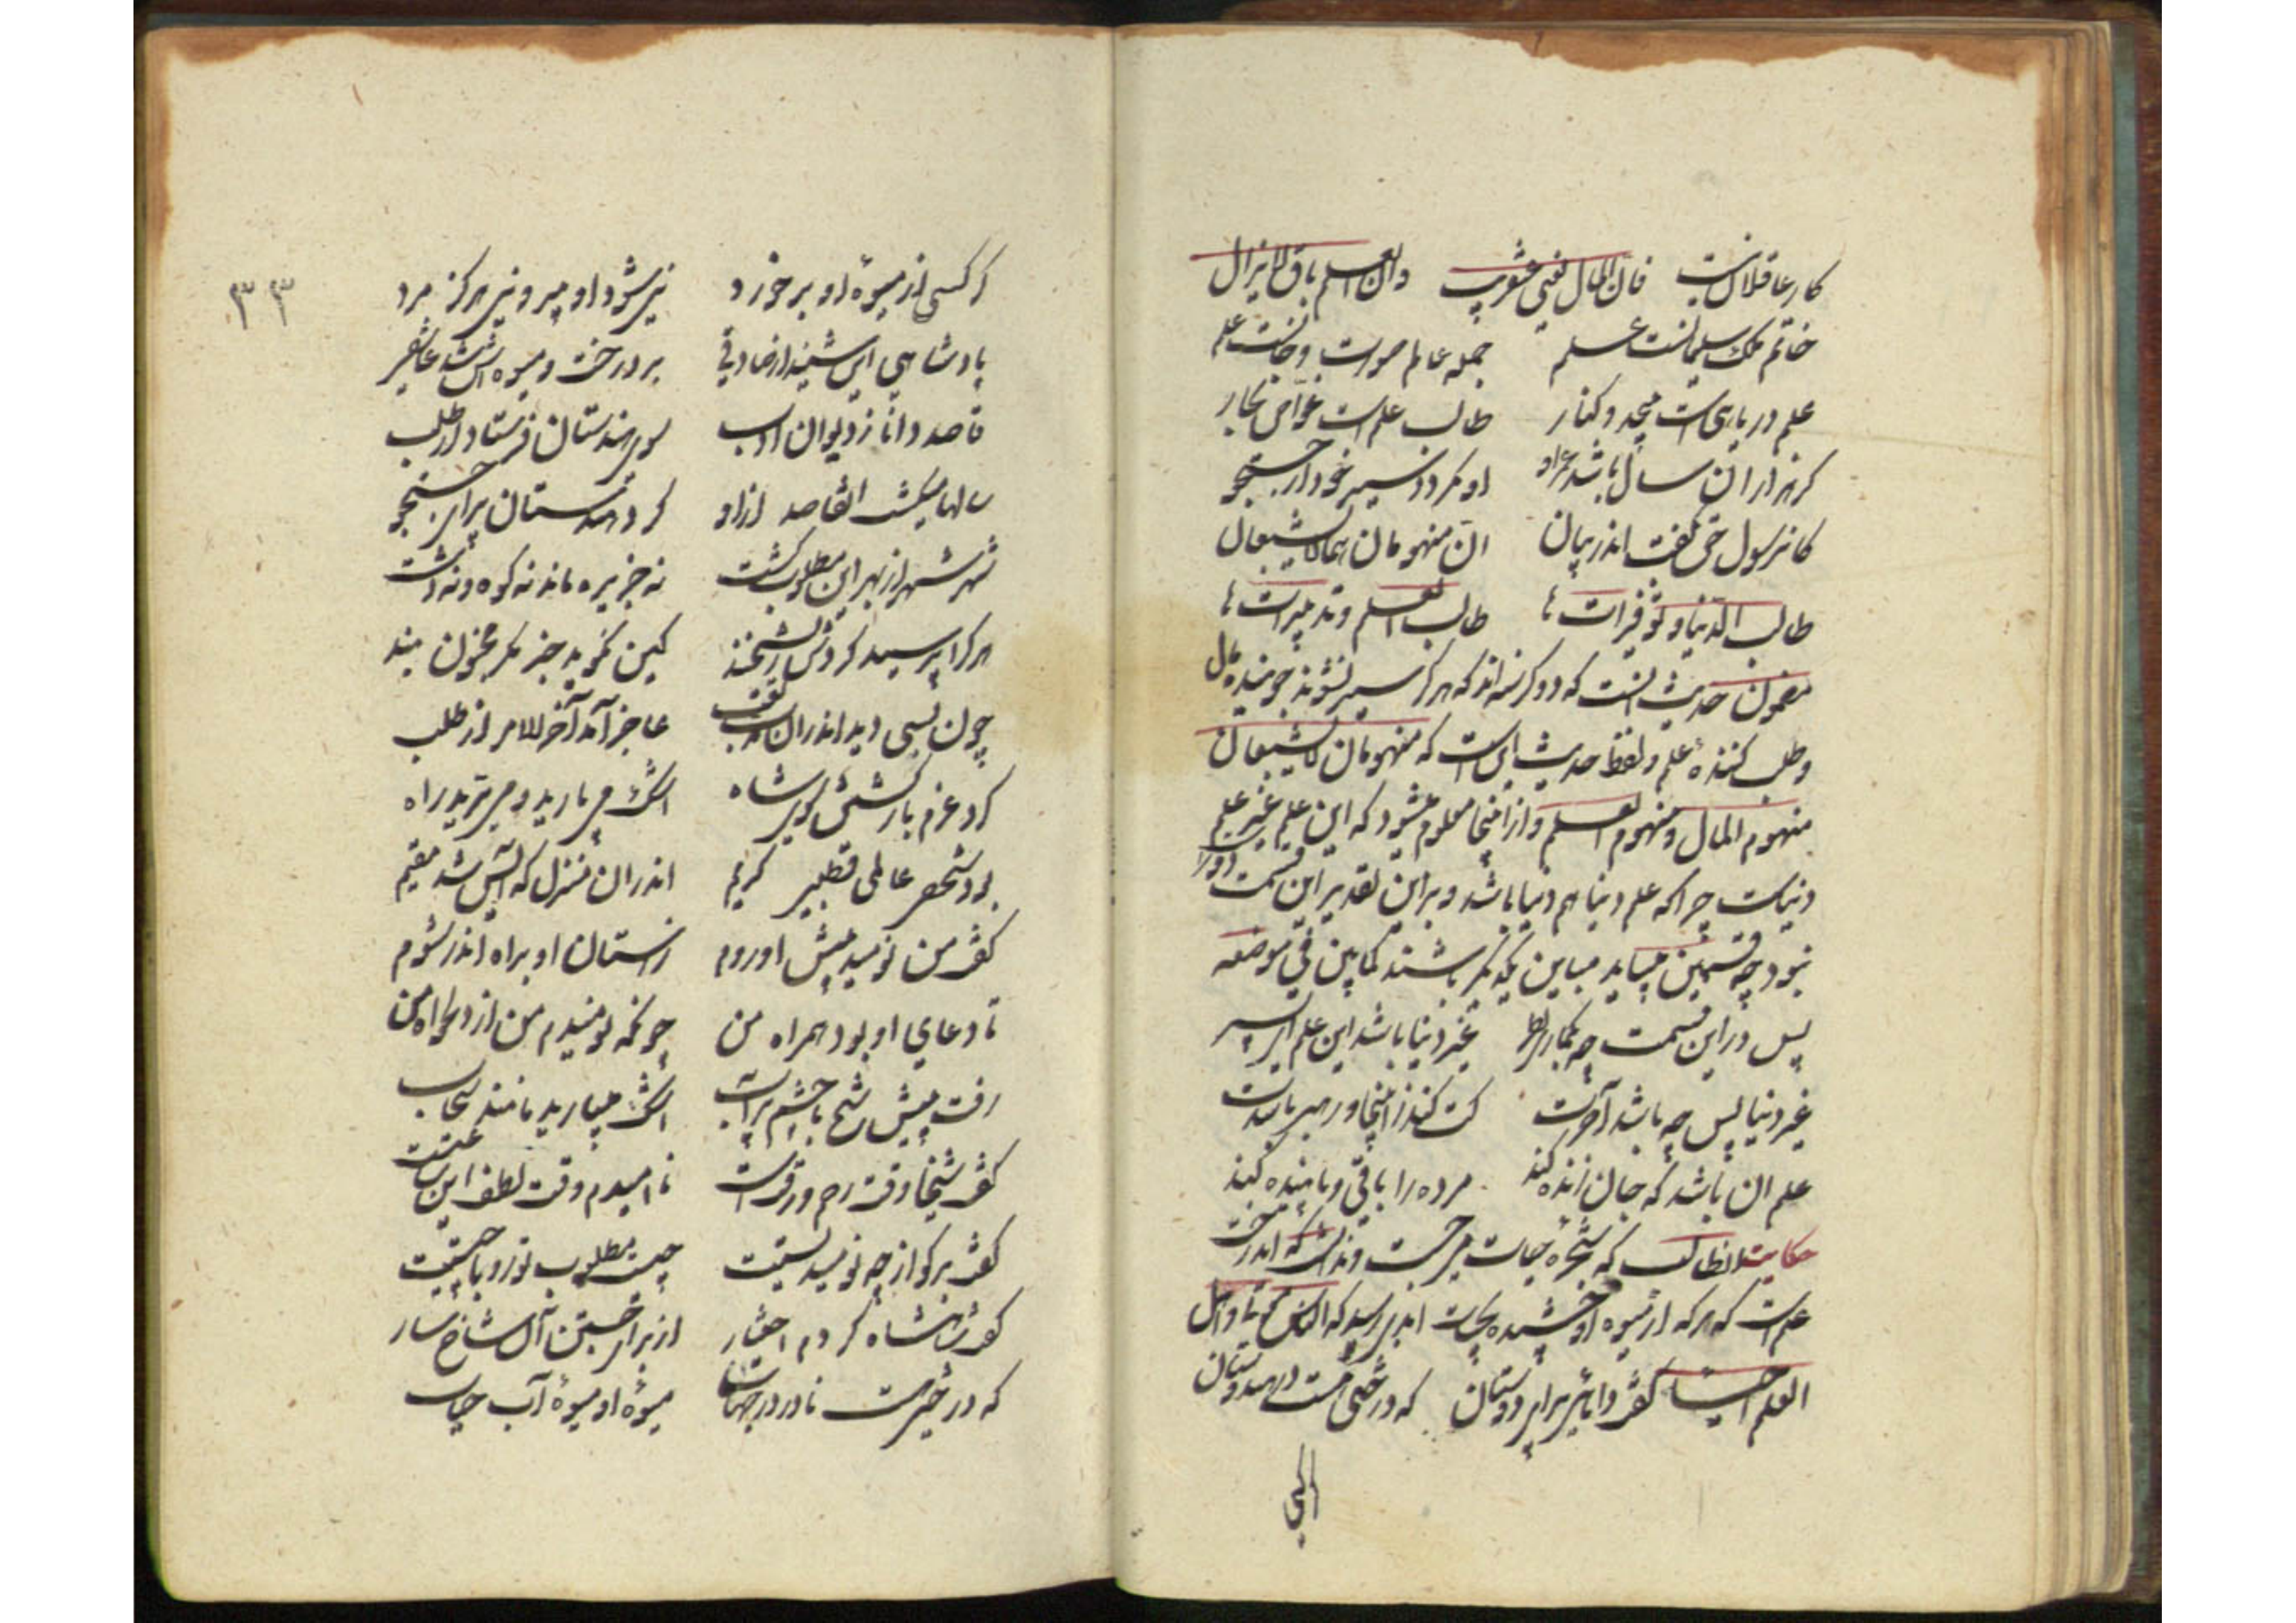 کار عاقلانست فان المال یفنی عنقریب وان العلم باق لا یزال
خاتم ملک سلیمانست علم جمله عالم صورت و جانست علم
علم دریاییست بیحد و کنار طالب علمست غواص بحار
گر هزاران سال باشد عمر او او نگردد سیر خود از جستجو
کان رسول حق بگفت اندر بیان ان منهومان هما لا یشبعان
طالب الدنیا و توفیراتها طالب العلم و تدبیراتها
مضمون حدیث اینست که دو گرسنه اند که هرگز سیر نشوند جوینده مال
وطلب کننده علم ولفظ حدیث این است که منهومان لا یشبعان
منهوم المال ومنهوم العلم و از اینجا معلوم میشود که این علم غیر علم
دنیاست چرا که علم دنیا هم دنیا باشد و بر این تقدیر این قسمت
نبود چه قسمین میباید مباین یکدیگر باشند کما بین فی موضعه
پس در این قسمت چه بگماری نظر غیر دنیا باشد این علم ای پسر
غیر دنیا پس چه باشد آخرت کت کند ز اینجا و رهبر باشدت
علم ان باشد که جان زنده کند مرده را باقی و پاینده کند
حکایت انطالب که شجره حیات میجست وندانست که اندرخت
علم است که هر که از میوه او چشیده بحیات ابدی رسید که الناس موتی و اهل
العلم احیاء گفت دانایی برای دوستان که درختی هست در هندوستان
هر کسی
۳۳
هر کسی از میوۀ او بر خورد نی شود او پیر و نی هرگز مرد
پادشاهی این شنید از صادقی بر درخت و میوه اش شد عاشقی
قاصد دانا ز دیوان ادب سوی هندستان فرستاد از طلب
سالها میگشت انقاصد ازاو گرد هندستان برای جستجو
شهر شهر از بهر این مطلوب گشت نه جزیره ماند نه کوه و نه دشت
هر کرا پرسید کردش ریشخند کین نجوید جز مگر مجنون بند
چون بسی دید اندران غربت تعب عاجز آمد آخر الامر از طلب
کرد عزم بازگشتن سوی شاه اشک می بارید و می برید راه
بود شیخی عالمی قطبی کریم اندران منزل که آیس شد مقیم
گفت من نومید پیش او روم ز استان او براه اندر شوم
تا دعای او بود همراه من چونکه نومیدم من از دلخواه من
رفت پیش شیخ با چشم پر آب اشک میبارید مانند سحاب
گفت شیخا وقت رحم و رقت است ناامیدم وقت لطف این ساعتست
گفت برگو از چه نومیدیستت چیست مطلوب تو رو با چیستت
گفت شاهنشاه کردم اختیار از برای جستن آن شاخسار
که درختیست نادر در جهات میوۀ او میوۀ آب حیات